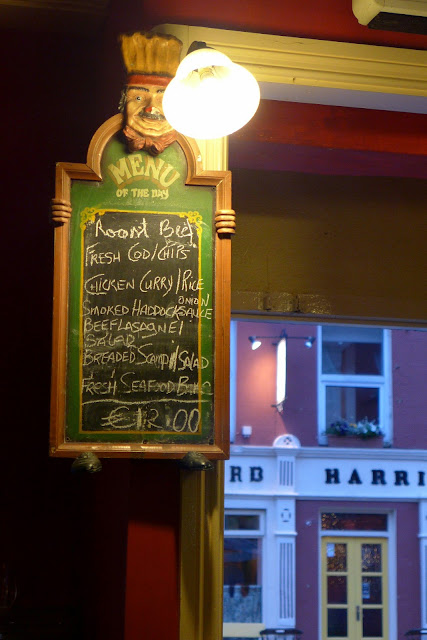 MENU
OF THE DAY
Roast Beef
FRESH COD/CHIPS
CHICKEN CURRY/RICE
SMOKED HADDOCK ONION SAUCE
BEEF LASAGNE/
SALAD
BREADED SCAMPI/SALAD
FRESH SEAFOOD
€12.00
RD HARRI